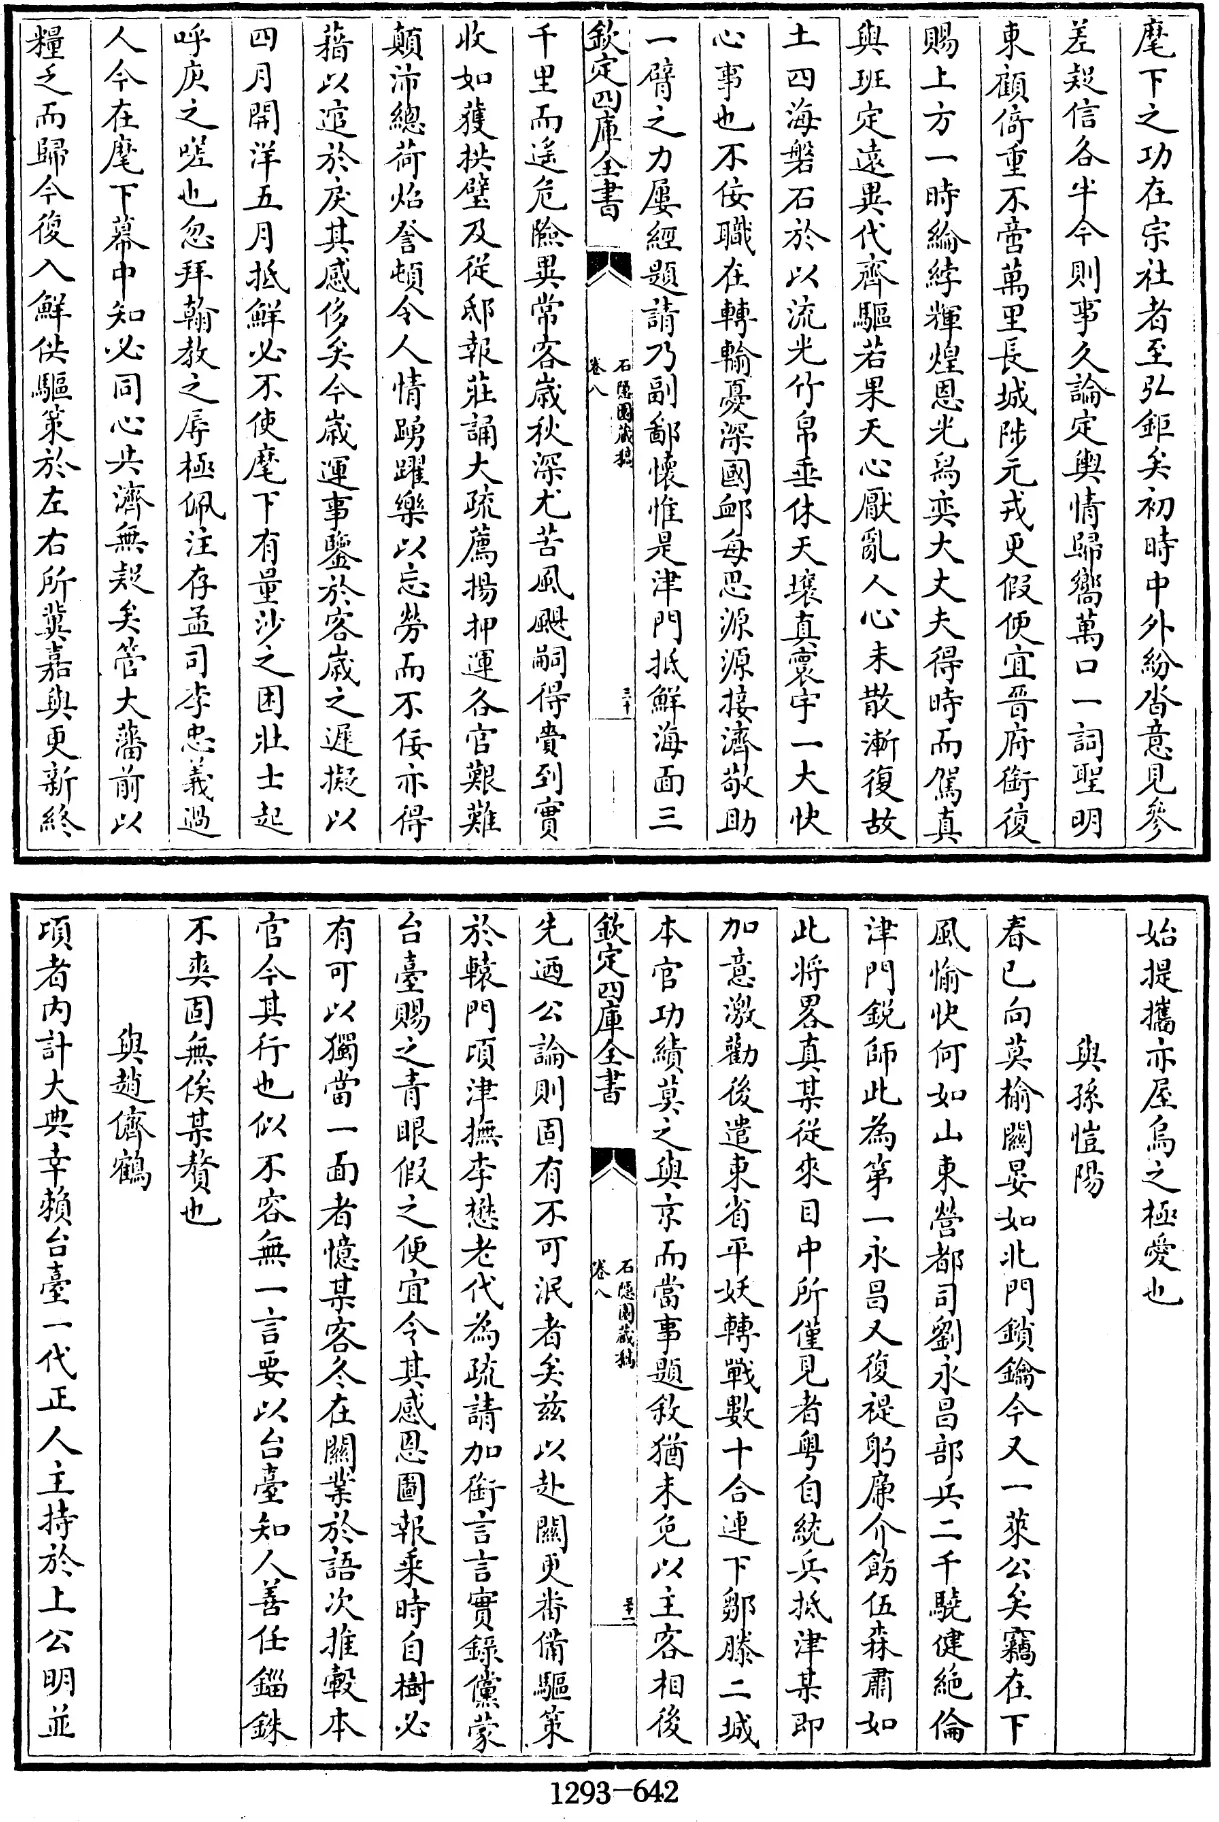 麾下之功在宗社者至弘鉅矣初時中外紛沓意見參
差疑信各半今則事久論定輿情歸嚮萬口一詞聖明
東顧倚重不啻萬里長城陟元戎更假便宜晉府銜復
賜上方一時綸綍輝煌恩光舄奕大丈夫得時而駕真
與班定遠異代齊驅若果天心厭亂人心未散漸復故
土四海磐石於以流光竹帛垂休天壤真寰宇一大快
心事也不佞職在轉輸憂深國䘏每思源源接濟敬助
一臂之力屢經題請乃副鄙懷惟是津門抵鮮海面三
欽定四庫全書
石隱園藏稿
卷八
三十
千里而遙危險異常客歲秋深尤苦風颶嗣得貴到實
收如獲拱璧及從邸報莊誦大疏薦揚押運各官艱難
顛沛總荷炤詧頓令人情踴躍樂以忘勞而不佞亦得
藉以逭於戾其感侈矣今歲運事鑒於客歲之遲擬以
四月開洋五月抵鮮必不使麾下有量沙之困壯士起
呼庚之嗟也忽拜翰教之辱極佩注存孟司李忠義過
人今在麾下幕中知必同心共濟無疑矣管大藩前以
糧乏而歸今復入鮮供驅策於左右所冀嘉與更新終
始提攜亦屋烏之極愛也
與孫愷陽
春已向莫榆關晏如北門鎖鑰今又一萊公矣竊在下
風愉快何如山東營都司劉永昌部兵二千驍健絕倫
津門銳師此為第一永昌又復禔躬廉介飭伍森肅如
此將畧真某從來目中所僅見者粤自統兵抵津某即
加意激勸後遣東省平妖轉戰數十合連下鄒滕二城
本官功績莫之與京而當事題敘猶未免以主客相後
欽定四庫全書
石隱園藏稿
卷八
三十一
先迺公論則固有不可泯者矣茲以赴關更番備驅策
於轅門頃津撫李懋老代為疏請加銜言言實錄儻蒙
台臺賜之青眼假之便宜令其感恩圖報乘時自樹必
有可以獨當一面者憶某客冬在關業於語次推轂本
官今其行也似不容無一言要以台臺知人善任錙銖
不爽固無俟某贅也
與趙儕鶴
頃者內計大典幸賴台臺一代正人主持於上公明並
1293-642